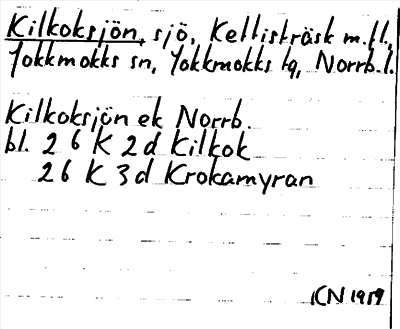 Kilkoksjön, sjö, Kellisträsk m.fl.,
Jokkmokks sn, Jokkmokks tg, Norrb.l.
Kilkoksjön ek Norrb.
bl. 26 K 2d Kilkok
26 K 3d Krokamyran
ICN 1959